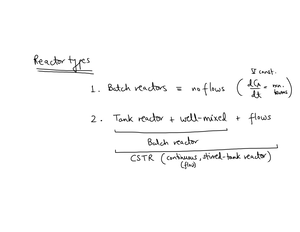 Reactor types
V const.
1. Batch reactors = no flows (dCA/dt = rxn. terms)
2. Tank reactor + well-mixed + flows
Batch reactor
CSTR (continuous, stirred-tank reactor)
(flow)